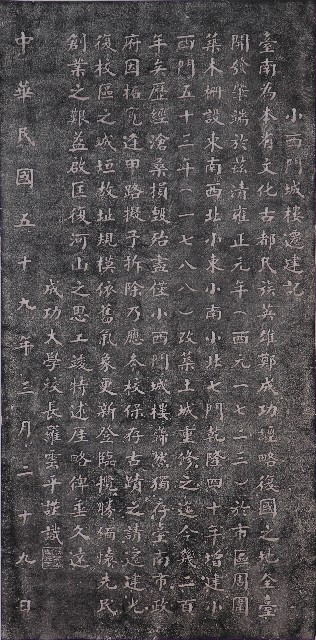 小西門城樓遷建記
臺南為本省文化古都民族英雄鄭成功經略復國之地全臺
開發肇端於茲清雍正元年(西元一七二三)於市區周圍
築木柵設東南西北小東小南小北七門乾隆四十年增建小
西門五十三年(一七八八)改築土城重修之迄今幾二百
年矣歷經滄桑損毀殆盡僅小西門城樓巋然獨存臺南市政
府因拓寬逢甲路擬予拆除乃應本校保存古蹟之請遷建光
復校區之城垣故址規模依舊氣象更新登臨攬勝緬懷先民
創業之艱益啟匡復河山之思工竣特述厓略俾垂久遠
成功大學校長羅雲平謹識
中華民國五十九年三月二十九日